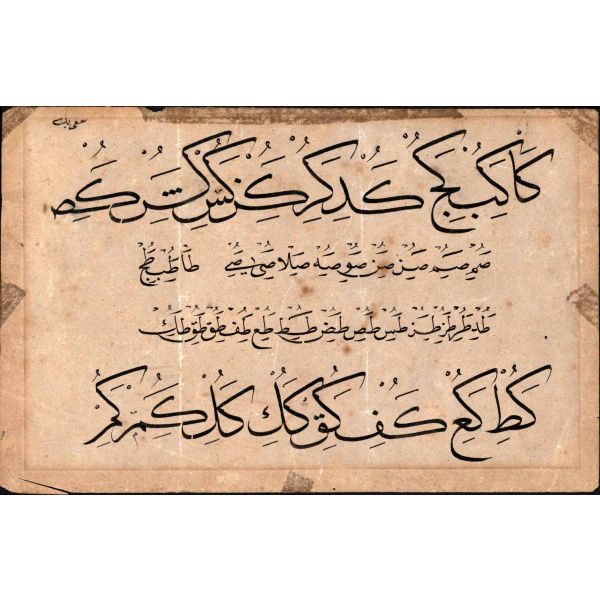 كا كب كج كد كر كز كس كش كص
صم صم صن صن صو صه صلا صى صى طا طب طج
طد طر طز طس طص طض طط طع طف طق طك
كط كع كف كق كك كل كم كم